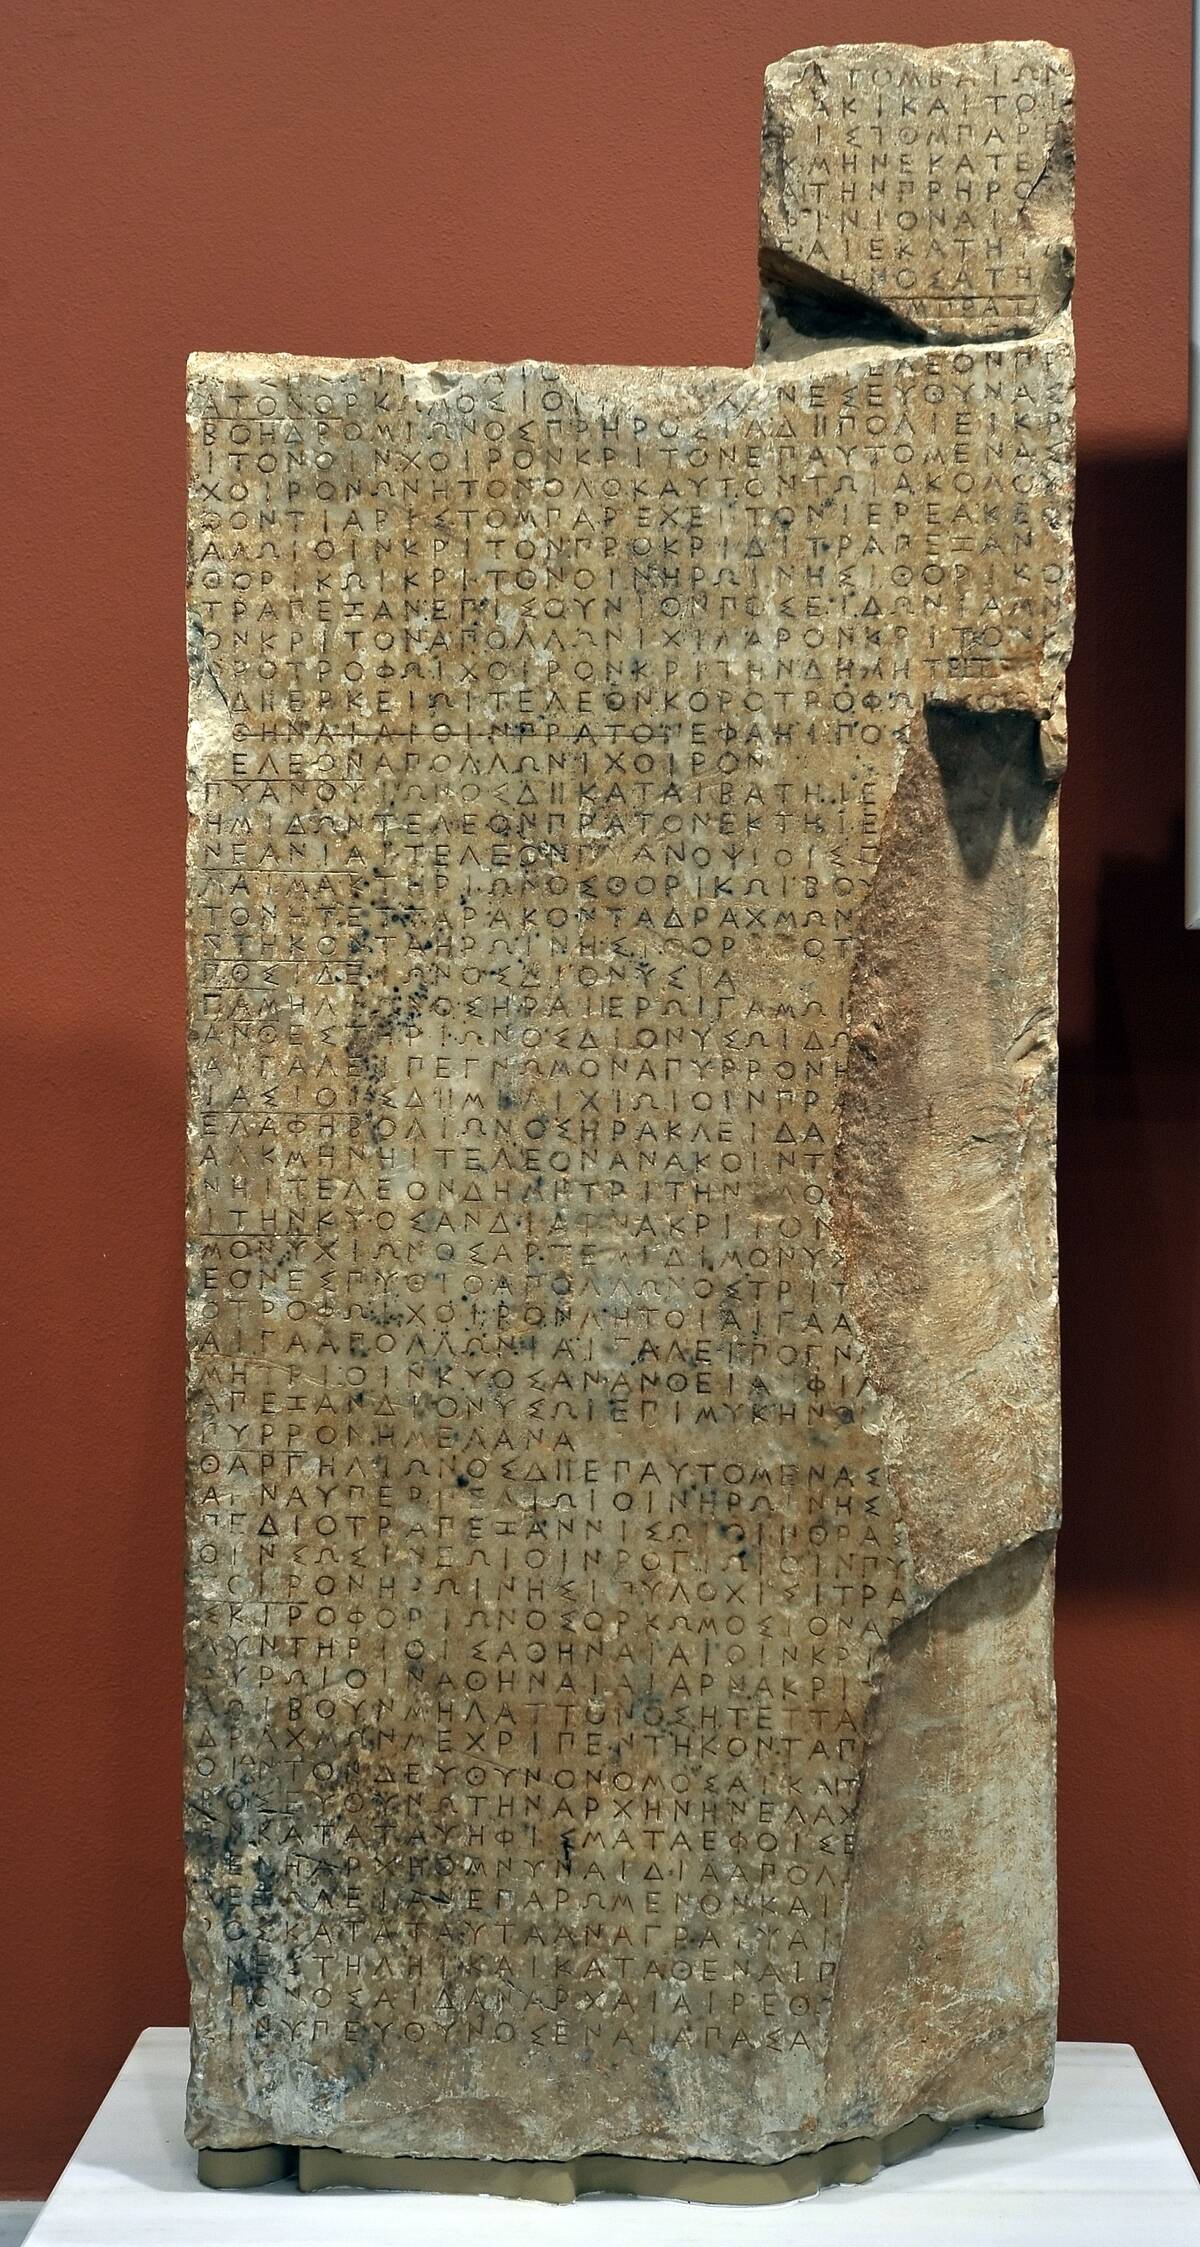 ΟΜΒΑΙΩΝ
ΑΚΙΚΑΙΤΟΙ
ΡΙΣΤΟΜΠΑΡΕ
ΜΗΝΕΚΑΤΕ
ΑΙΤΗΝΠΡΗΡΟ
ΦΙΝΙΟΝΑΙ
ΕΑΙΕΚΑΤΗΙ
ΗΝΟΣΑΤΗ
ΟΜΠΡΑΤ
ΕΛΕΟΝΠΡ
ΑΤΟΝΟΡΚΩΜΟΣΙΟΝ ΝΕΣΕΥΘΥΝΑΣ
ΒΟΗΔΡΟΜΙΩΝΟΣΠΡΗΡΟΣΙΑΔΙΙΠΟΛΙΕΙΚΡ
ΙΤΟΝΟΙΝΧΟΙΡΟΝΚΡΙΤΟΝΕΠΑΥΤΟΜΕΝΑΣ
ΧΟΙΡΟΝΩΝΗΤΟΝΟΛΟΚΑΥΤΟΝΤΩΙΑΚΟΛΟΥ
ΘΟΝΤΙΑΡΙΣΤΟΜΠΑΡΕΧΕΙΤΟΝΙΕΡΕΑΚΕΦ
ΑΛΩΙΟΙΝΚΡΙΤΟΝΠΡΟΚΡΙΔΙΤΡΑΠΕΖΑΝ
ΘΟΡΙΚΩΙΚΡΙΤΟΝΟΙΝΗΡΩΙΝΗΣΙΘΟΡΙΚΟ
ΤΡΑΠΕΖΑΝΕΠΙΣΟΥΝΙΟΝΠΟΣΕΙΔΩΝΙΑΜΝ
ΟΝΚΡΙΤΟΝΑΠΟΛΛΩΝΙΧΙΜΑΡΟΝΚΡΙΤΟΝΚ
ΟΡΟΤΡΟΦΩΙΧΟΙΡΟΝΚΡΙΤΗΝΔΗΜΗΤΡΙΤΕ
ΔΙΙΕΡΚΕΙΩΙΤΕΛΕΟΝΚΟΡΟΤΡΟΦΩΙΧΟΙ
ΘΗΝΑΙΑΙΟΙΝΠΡΑΤΟΝΕΦΑΛΗΙΠΟΣ
ΕΛΕΟΝΑΠΟΛΛΩΝΙΧΟΙΡΟΝ
ΠΥΑΝΟΨΙΩΝΟΣΔΙΙΚΑΤΑΙΒΑΤΗΙΕ
ΗΜΙΔΩΝΤΕΛΕΟΝΠΡΑΤΟΝΕΚΤΗΙΕ
ΝΕΑΝΙΑΙΤΕΛΕΟΝΠΥΑΝΟΨΙΟΙΣΠ
ΜΑΙΜΑΚΤΗΡΙΩΝΟΣΘΟΡΙΚΩΙΒΟΥ
ΤΟΝΗΤΕΤΤΑΡΑΚΟΝΤΑΔΡΑΧΜΩΝ
ΝΤΗΚΟΝΤΑΗΡΩΙΝΗΣΙΘΟΡ ΟΤ
ΠΟΣΙΔΕΙΩΝΟΣΔΙΟΝΥΣΙΑ
ΓΑΜΗΛΙΩΝΟΣΗΡΑΙΙΕΡΩΙΓΑΜΩΙ
ΑΝΘΕΣΤΗΡΙΩΝΟΣΔΙΟΝΥΣΩΙΔΩ
ΑΙΓΑΛΕΙΠΕΓΝΩΜΟΝΑΠΥΡΡΟΝΗ
ΙΑΣΙΟΙΣΔΙΙΜΙΛΙΧΙΩΙΟΙΝΠΡΑ
ΕΛΑΦΗΒΟΛΙΩΝΟΣΗΡΑΚΛΕΙΔΑ
ΑΛΚΜΗΝΗΙΤΕΛΕΟΝΑΝΑΚΟΙΝΤ
ΝΗΙΤΕΛΕΟΝΔΗΜΗΤΡΙΤΗΝΧΛΟ
ΙΤΗΝΚΥΟΣΑΝΔΙΑΡΝΑΚΡΙΤΟΝ
ΜΟΝΥΧΙΩΝΟΣΑΡΤΕΜΙΔΙΜΟΝΥΧ
ΕΟΝΕΣΠΥΘΙΟΑΠΟΛΛΩΝΟΣΤΡΙΤ
ΟΤΡΟΦΩΙΧΟΙΡΟΝΛΗΤΟΙΑΙΓΑΑ
ΑΙΓΑΑΠΟΛΛΩΝΙΑΙΓΑΛΕΙΠΟΓΝ
ΜΗΤΡΙΟΙΝΚΥΟΣΑΝΑΝΘΕΙΑΝΦΙΛ
ΑΠΕΖΑΝΔΙΟΝΥΣΩΙΕΠΙΜΥΚΗΝΟΝ
ΠΥΡΡΟΝΗΜΕΛΑΝΑ
ΘΑΡΓΗΛΙΩΝΟΣΔΙΙΕΠΑΥΤΟΜΕΝΑΣ
ΑΡΝΑΥΠΕΡΠΕΔΙΩΙΟΙΝΗΡΩΙΝΗΣ
ΠΕΔΙΟΤΡΑΠΕΖΑΝΝΙΣΩΙΟΙΝΘΡΑΣ
ΟΙΝΣΩΣΙΝΕΩΙΟΙΝΡΟΓΙΩΙΟΙΝΠΥ
ΧΟΙΡΟΝΗΡΩΙΝΗΣΙΠΥΛΟΧΙΣΙΤΡΑ
ΣΚΙΡΟΦΟΡΙΩΝΟΣΟΡΚΩΜΟΣΙΟΝΠΑ
ΛΥΝΤΗΡΙΟΙΣΑΘΗΝΑΙΑΙΟΙΝΚΡΙ
ΑΥΡΩΙΟΙΝΑΘΗΝΑΙΑΙΑΡΝΑΚΡΙΤ
ΑΛΩΙΒΟΥΝΜΗΛΑΤΤΟΝΟΣΗΤΕΤΤΑ
ΔΡΑΧΜΩΝΜΕΧΡΙΠΕΝΤΗΚΟΝΤΑΠ
ΟΙΑΝΤΟΝΔΕΥΘΥΝΟΝΟΜΟΣΑΙΚΑΙΤ
ΡΟΣΕΥΘΥΝΩΤΗΝΑΡΧΗΝΗΝΕΛΑΧ
ΕΝΚΑΤΑΤΑΨΗΦΙΣΜΑΤΑΕΦΟΙΣΕ
ΚΕΝΗΑΡΧΗΟΜΝΥΝΑΙΔΙΑΑΠΟΛ
ΑΕΞΩΛΕΙΑΝΕΠΑΡΩΜΕΝΟΝΚΑΙ
ΡΟΣΚΑΤΑΤΑΥΤΑΑΝΑΓΡΑΨΑΙ
ΝΕΣΤΗΛΗΙΚΑΙΚΑΤΑΘΕΝΑΙΠ
ΙΟΝΟΣΑΙΔΑΝΑΡΧΑΙΑΙΡΕΘΩ
ΣΙΝΥΠΕΥΘΥΝΟΣΕΝΑΙΑΠΑΣΑ